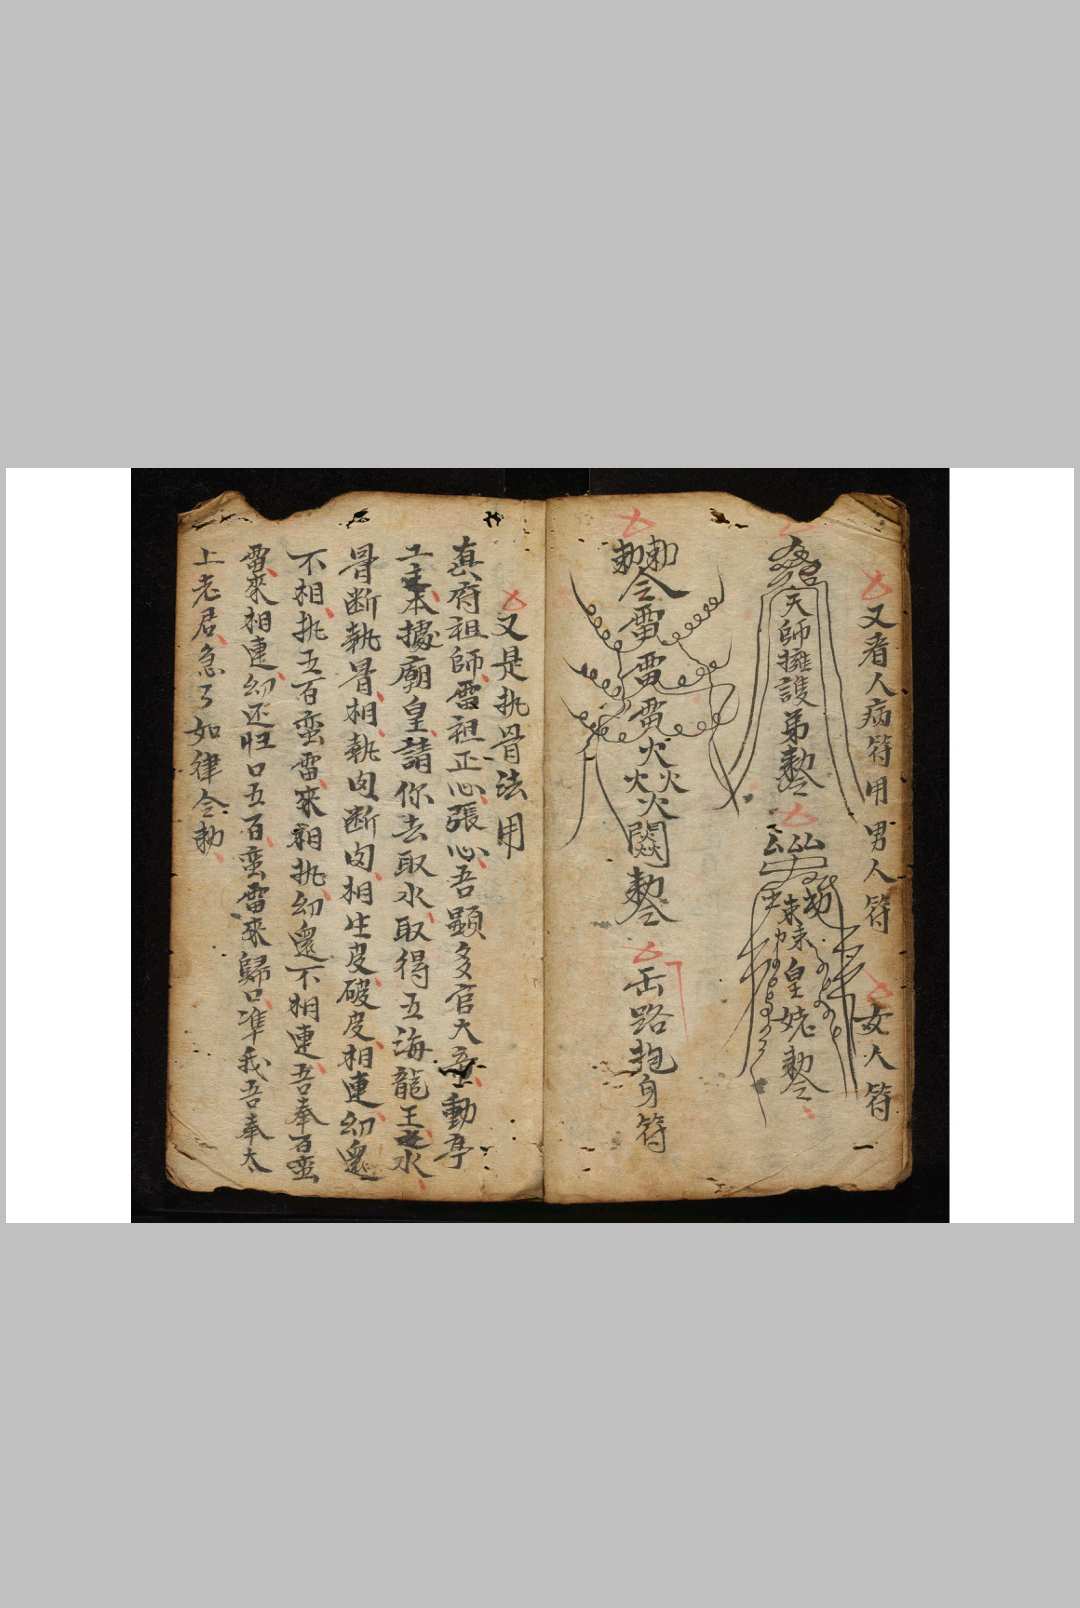 又看人病符用男人符
女人符
天師擁護弟
皇姥
勅勅令雷雷雷火火火火
缶路抱身符
又是执骨法用
真府祖師雷祖正心張心吾顯多官大動亭
本據廟皇請你去取水取得五海龍王水
骨断執骨相執肉断肉相生皮破皮相連幻還
不相执五百蛮雷來相执幻還不相連吾奉百蛮
雷來相連幻还归口五百蛮雷來歸口準我吾奉太
上老君急了如律令勅